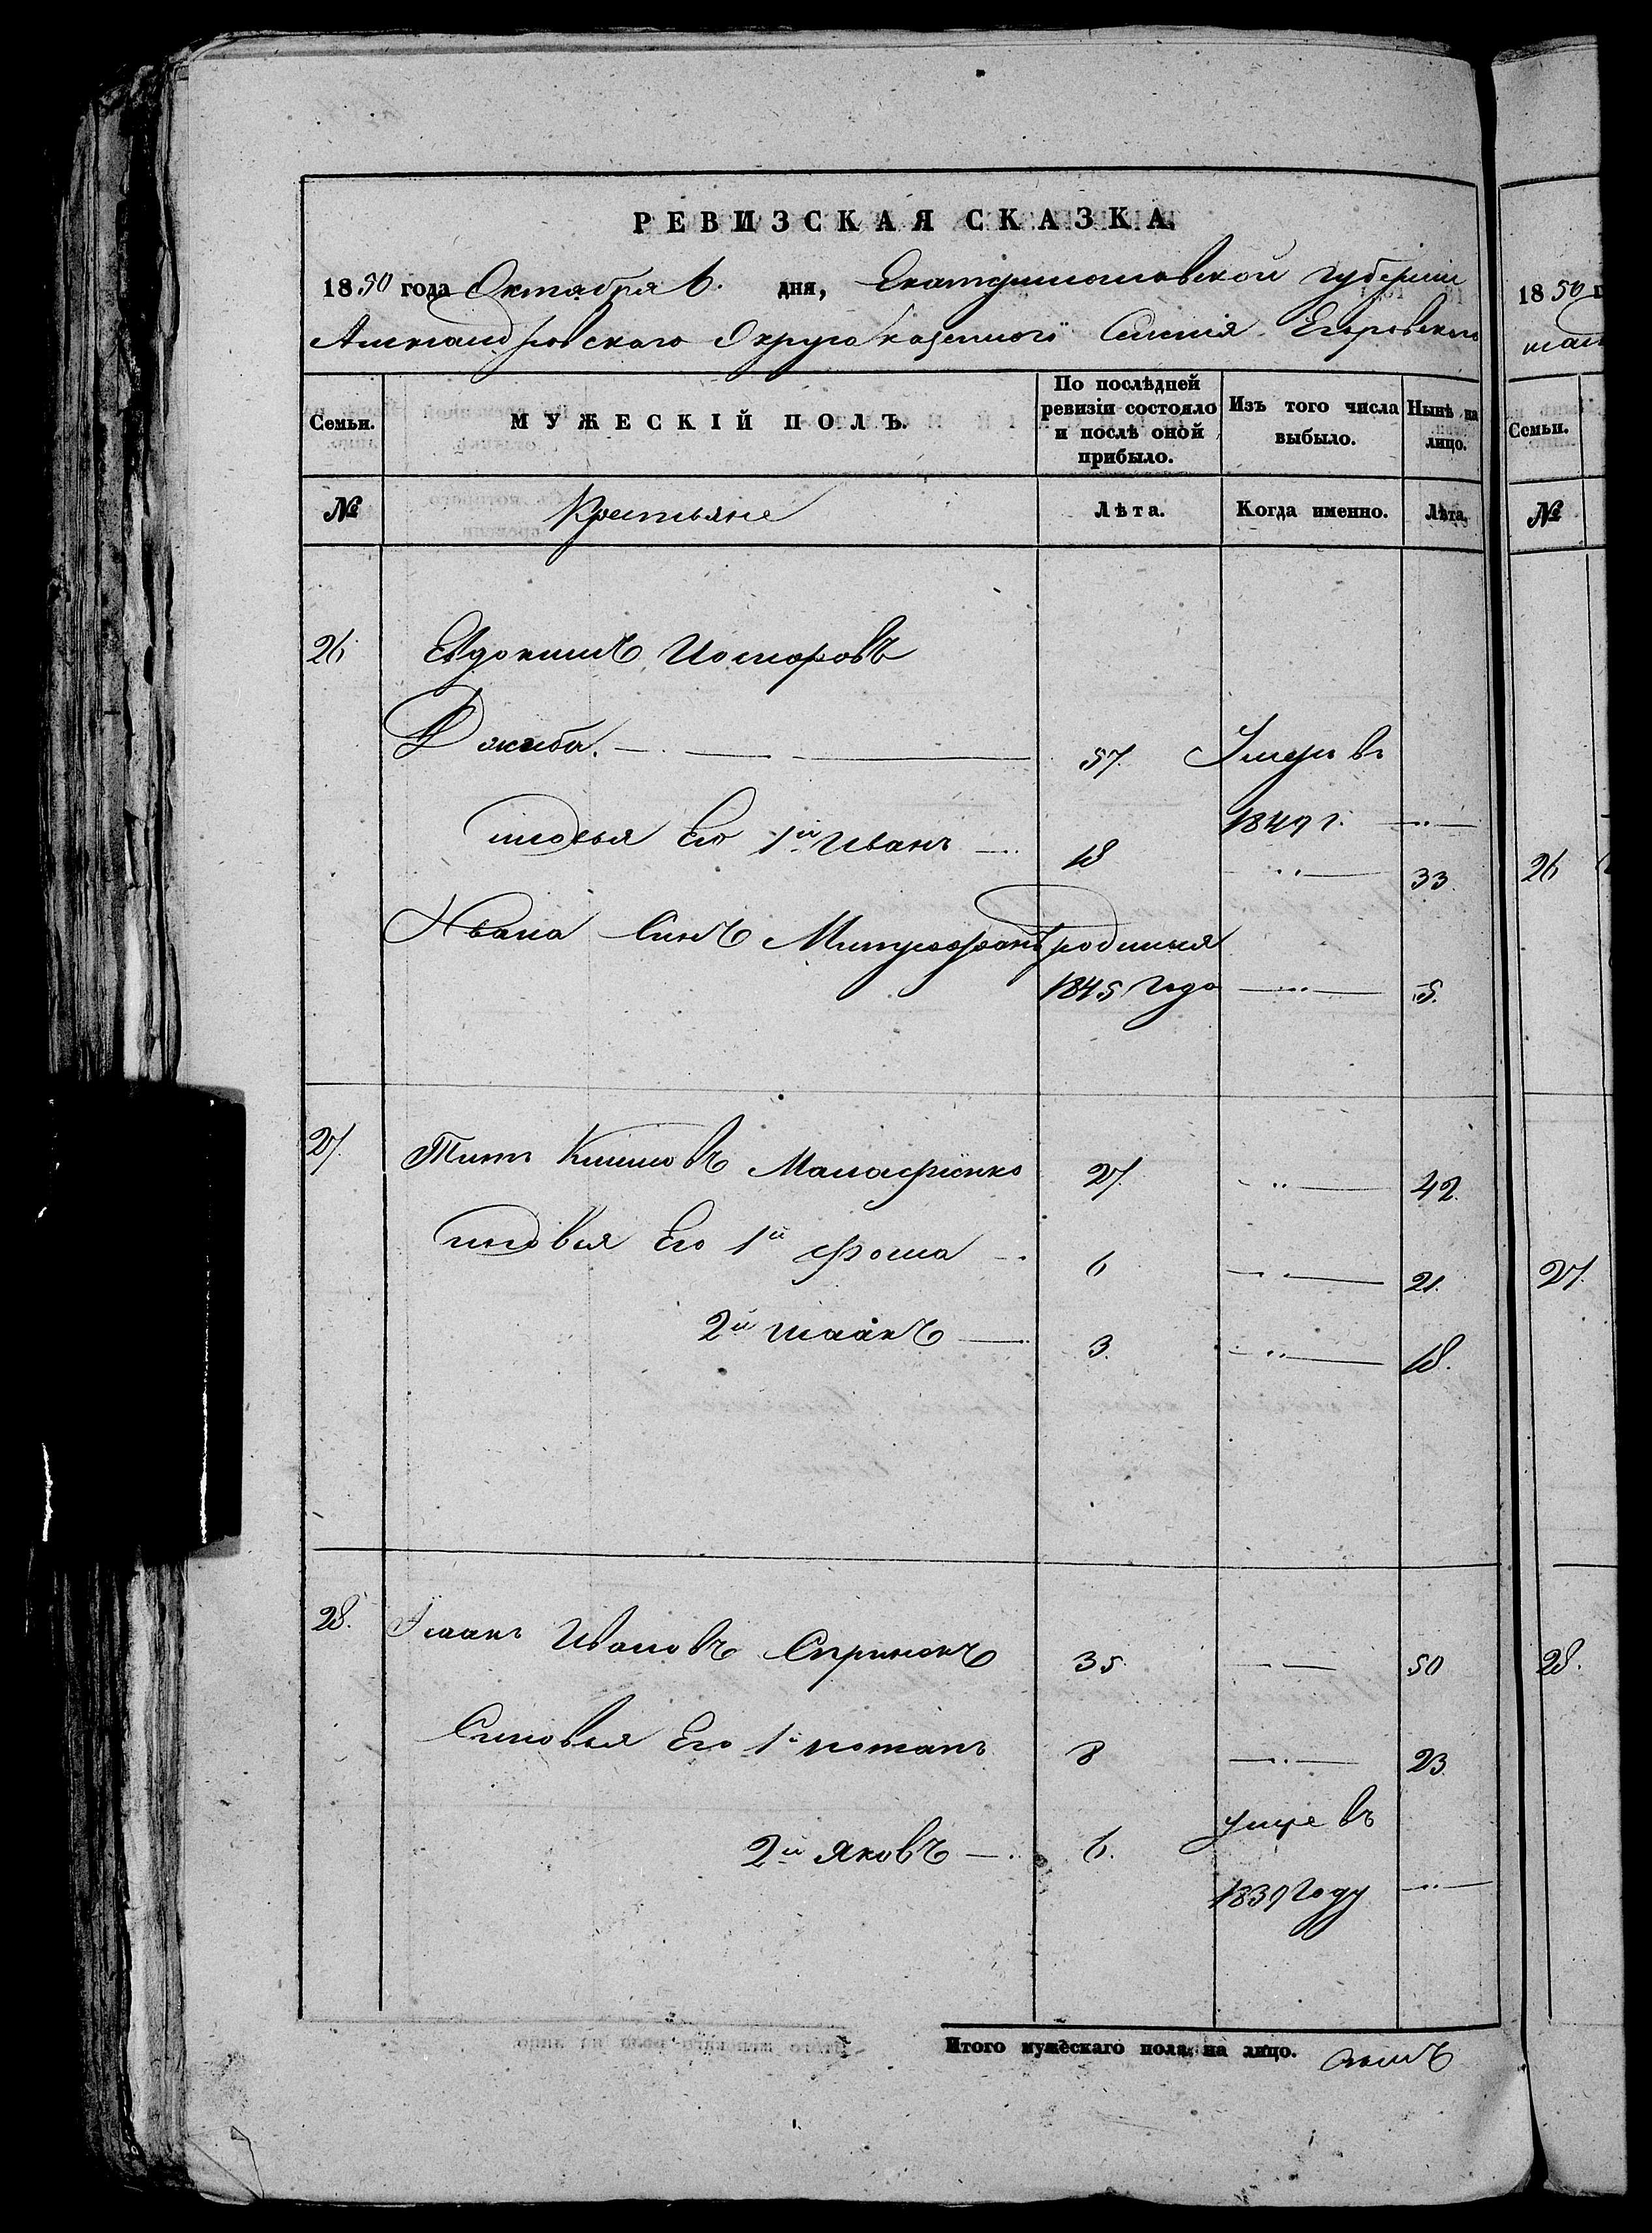 РЕВИЗСКАЯ СКАЗКА
1850 года Октября 6. дня, Екатеринославской губернии
Александровского Округа казенного Селенія Егоровского
Семьи. МУЖЕСКІЙ ПОЛЪ. По послѣдней ревизіи состояло и послѣ оной прибыло. Изъ того числа выбыло. Нынѣ на лицо.
№ Крестьяне Лѣта. Когда именно. Лѣта.
26 Евдокимъ
57. Умеръ въ
Его 1й Иванъ 18 1849 г.
33.
Ивана Синъ Митрофанъ родился
1845 года 5.
27. Титъ Климовъ 27. 42.
Его 1й Фома 6 21.
2й Исаакъ 3. 18.
28. Исаакъ Ивановъ 35. 50
Синовья Его 1й Потапъ 8 23.
2й Яковъ 6. умре въ
1839 году
Итого мужескаго пола, на лицо. семъ
1850 г
Семьи.
№
26
27.
28.